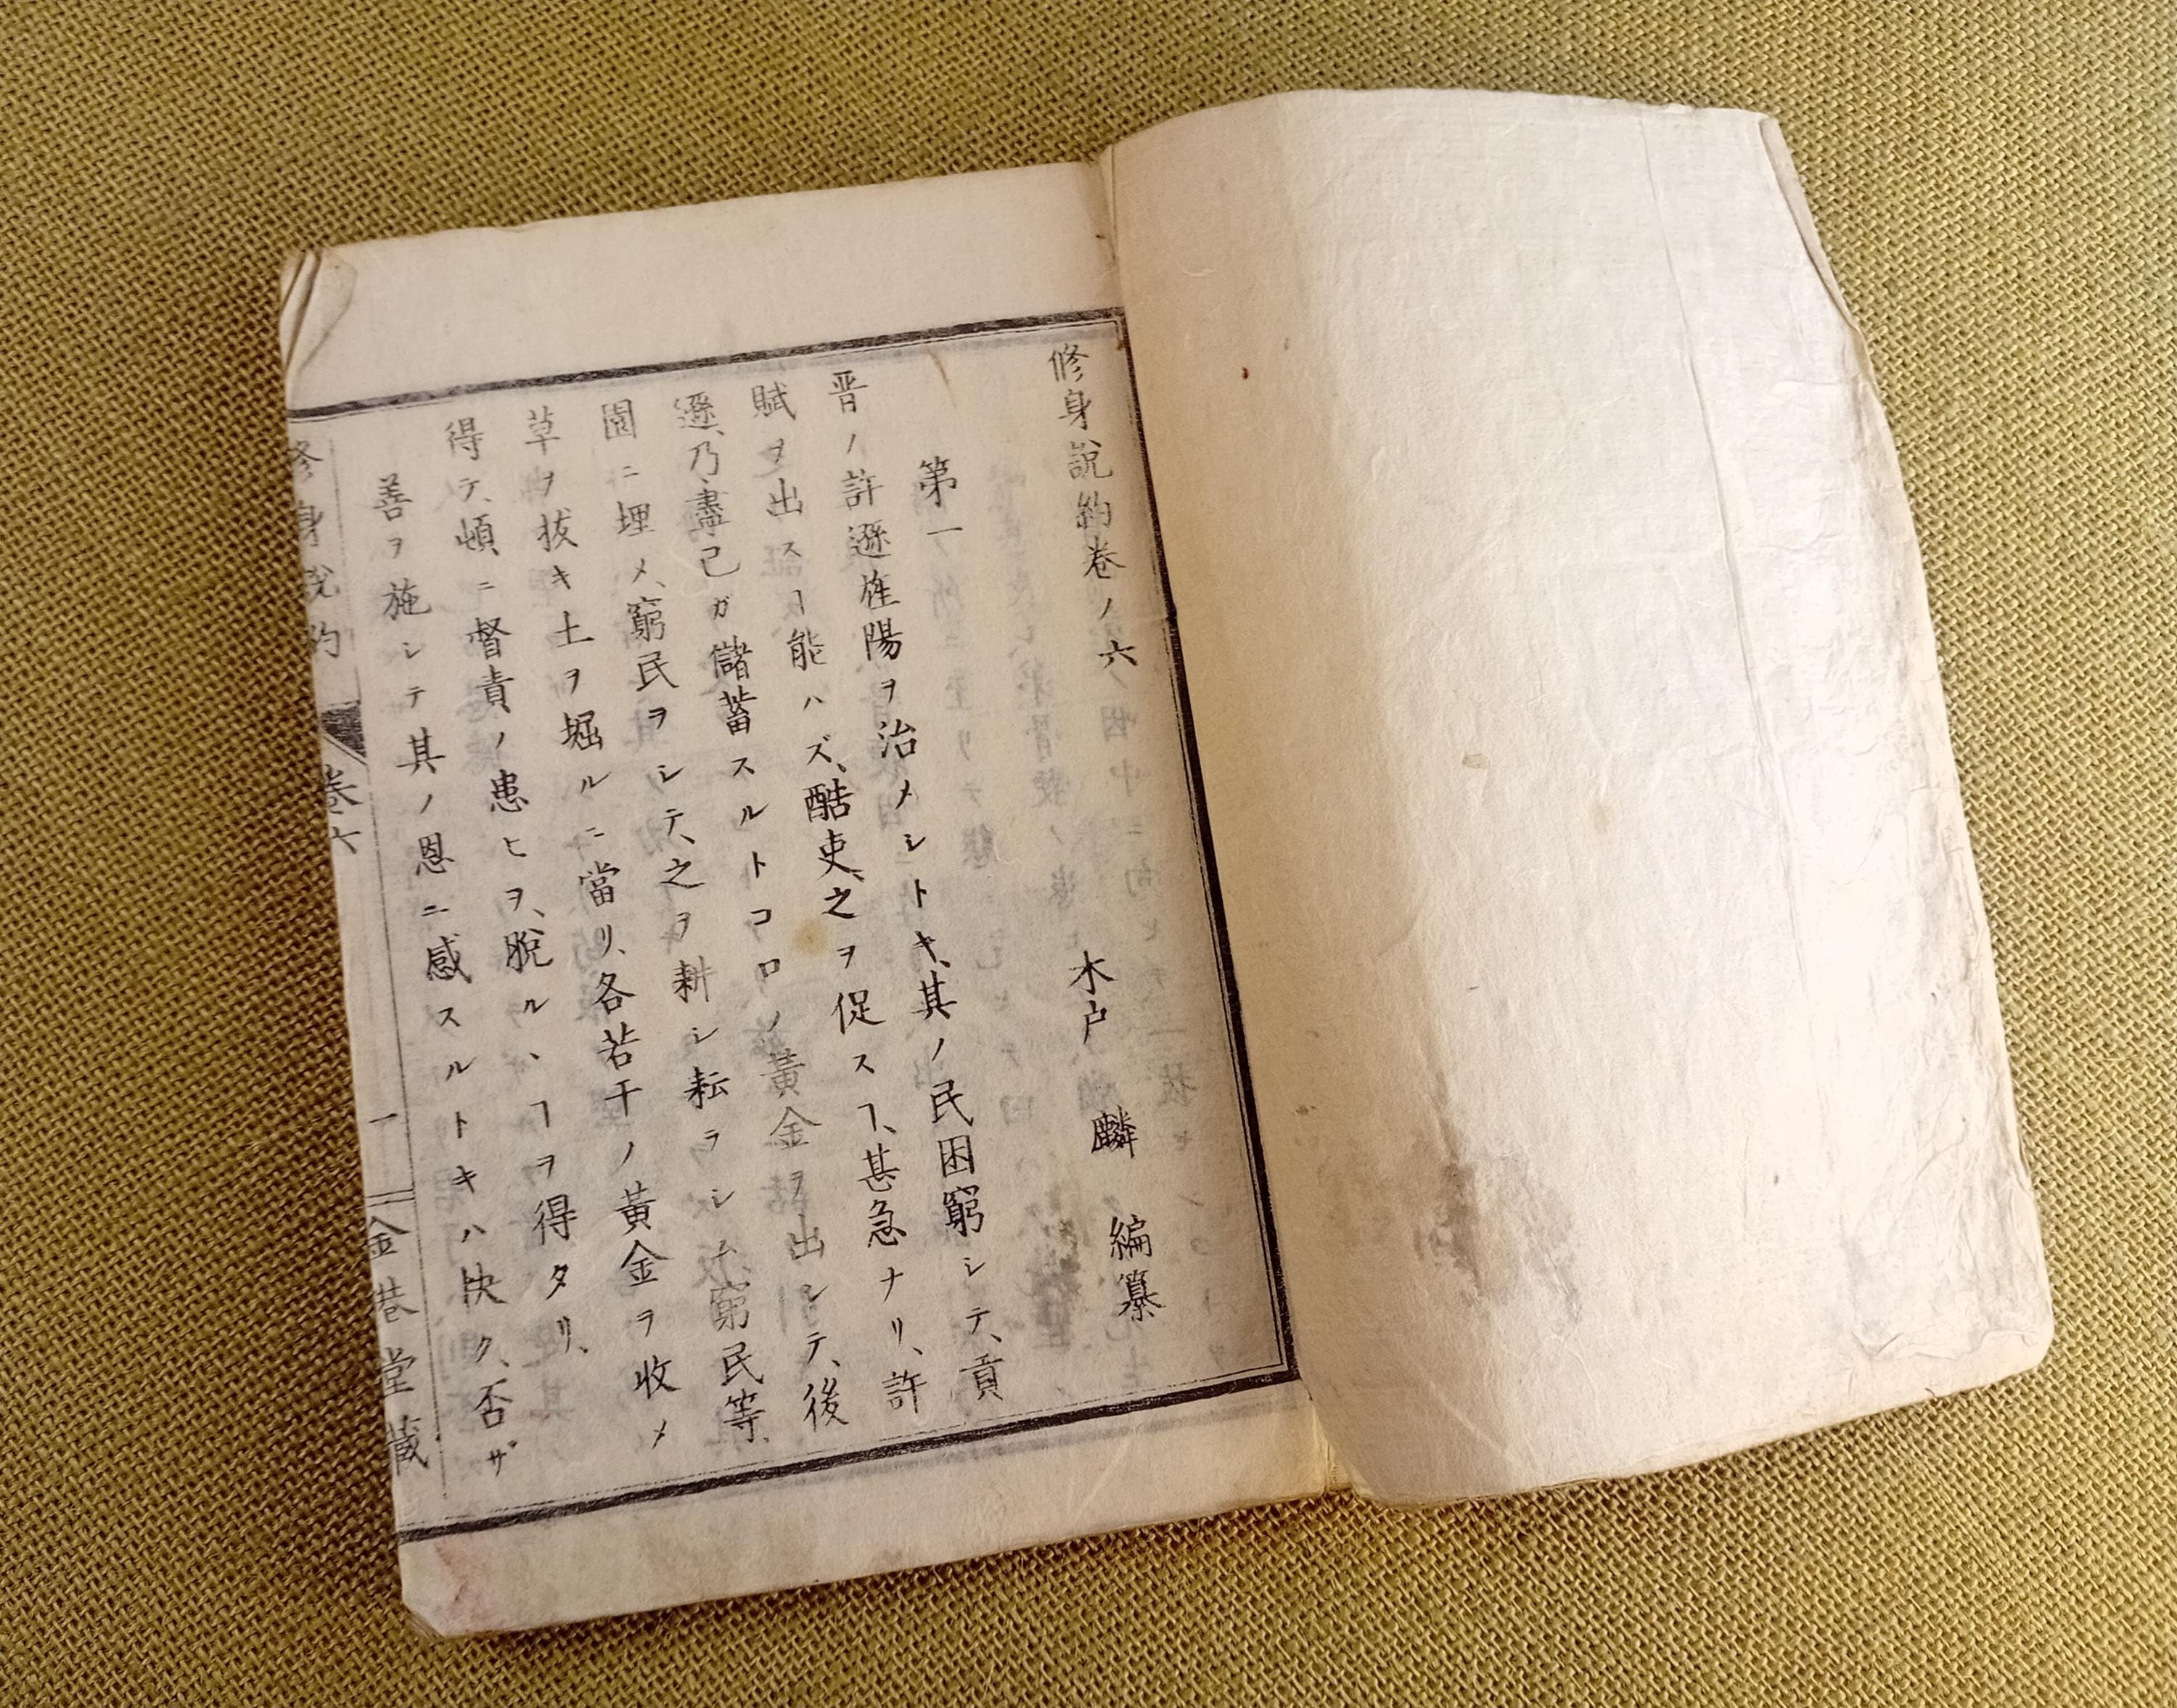 修身説約卷ノ六
木戸 麟 編纂
第一
晋ノ許遜旌陽ヲ治メシトキ、其ノ民困窮シテ、貢
賦ヲ出スヿ能ハズ、酷吏、之ヲ促スヿ、甚急ナリ、許
遜、乃、盡己ガ儲蓄スルトコロノ黄金ヲ出シテ、後
園ニ埋メ、窮民ヲシテ、之ヲ耕シ耘ラシム、窮民等、
草ヲ抜キ土ヲ堀ルニ當リ、各若干ノ黄金ヲ收メ
得テ、頓ニ督責ノ患ヒヲ、脱ルヽヿヲ得タリ、
善ヲ施シテ其ノ恩ニ感スルトキハ快ク、否ザ
修身説約 卷六 一 金巷堂藏